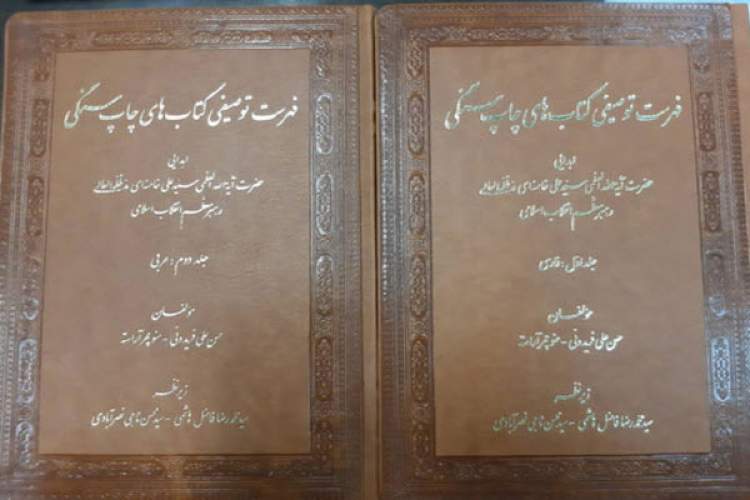 فهرست توصیفی کتاب‌های چاپ سنگی
اهدایی
حضرت آیةالله العظمی سید علی خامنه‌ای مدظله‌العالی
رهبر معظم انقلاب اسلامی
جلد اول: فارسی
مؤلفان
حسن علی فریدونی - منوچهر آراسته
زیر نظر
سید محمد رضا فاضل هاشمی - سید محسن ناجی نصرآبادی
فهرست توصیفی کتاب‌های چاپ سنگی
اهدایی
حضرت آیةالله العظمی سید علی خامنه‌ای مدظله‌العالی
رهبر معظم انقلاب اسلامی
جلد دوم: عربی
مؤلفان
حسن علی فریدونی - منوچهر آراسته
زیر نظر
سید محمد رضا فاضل هاشمی - سید محسن ناجی نصرآبادی